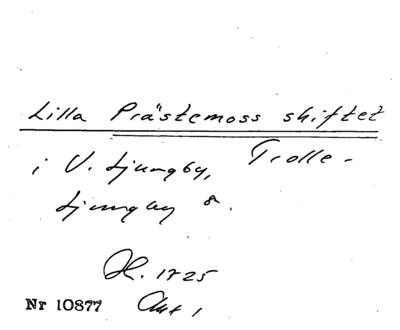 Lilla Prästemoss skiftet
i V. Ljungby, Trolle-
Ljungby s.
H. 1725
Nr 10877 Akt 1